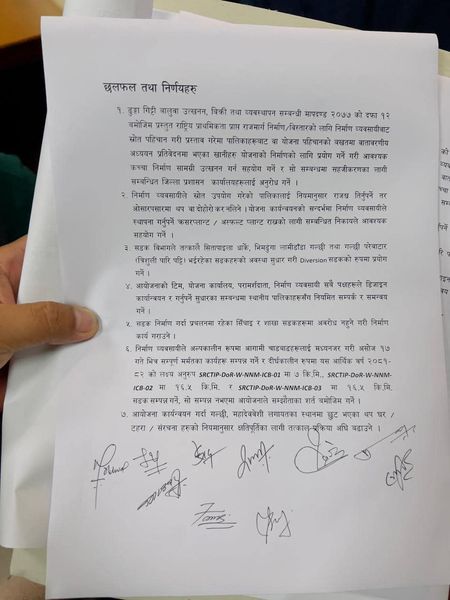 छलफल तथा निर्णयहरु
१. ढुङ्गा गिट्टी बालुवा उत्खनन, बिक्री तथा व्यवस्थापन सम्बन्धी मापदण्ड २०७७ को दफा १२
बमोजिम प्रस्तुत राष्ट्रिय प्राथमिकता प्राप्त राजमार्ग निर्माण/विस्तारको लागि निर्माण व्यवसायीबाट
स्रोत पहिचान गरी प्रस्ताव गरेमा पालिकाहरुबाट वा योजना पहिचानको बखतमा वातावरणीय
अध्ययन प्रतिवेदनमा भएका खानीहरु योजनाको निर्माणको लागि प्रयोग गर्ने गरी आवश्यक
कच्चा निर्माण सामग्री उत्खनन गर्न सहयोग गर्ने र सो सम्बन्धमा सहजीकरणका लागी
सम्बन्धित जिल्ला प्रशासन कार्यालयहरुलाई अनुरोध गर्ने ।
२. निर्माण व्यवसायीले स्रोत उपयोग गरेको पालिकालाई नियमानुसार राजश्व तिर्नुपर्ने तर
ओसारपसारमा थप वा दोहोरो कर नलिने । योजना कार्यन्वयनको सन्दर्भमा निर्माण व्यवसायीले
स्थापना गर्नुपर्ने क्रसरप्लान्ट / अस्फल्ट प्लान्ट राख्नको लागी सम्बन्धित निकायले आवश्यक
सहयोग गर्ने ।
३. सडक विभागले तत्काल सितापाइला धार्के, भिमढुंगा लामीडाँडा गल्छी तथा गल्छी परेवाटार
(त्रिशुली पारि पट्टि) भईरहेका सडकहरुको अवस्था सुधार गरी Diversion सडकको रुपमा प्रयोग
गर्ने ।
४. आयोजनाको टिम, योजना कार्यालय, परामर्शदाता, निर्माण व्यवसायी सबै पक्षहरुले डिजाइन
कार्यान्वयन र गर्नुपर्ने सुधारका सम्बन्धमा स्थानीय पालिकाहरुसँग नियमित सम्पर्क र समन्वय
गर्ने ।
५. सडक निर्माण गर्दा प्रचलनमा रहेका सिँचाई र शाखा सडकहरुमा अवरोध नहुने गरी निर्माण
कार्य गराउने ।
६. निर्माण व्यवसायीले अल्पकालीन रुपमा आगामी चाडबाडहरुलाई मध्यनजर गरी असोज १७
गते भित्र सम्पूर्ण मर्मतका कार्यहरु सम्पन्न गर्ने र दीर्घकालीन रुपमा यस आर्थिक वर्ष २०८१-
८२ को लक्ष्य अनुरुप SRCTIP-DoR-W-NNM-ICB-01 मा ७ कि.मि., SRCTIP-DoR-W-NNM-
ICB-02 मा १६.५ कि.मि. र SRCTIP-DoR-W-NNM-ICB-03 मा १६.५ कि.मि.
सडक सम्पन्न गर्ने, सो सम्पन्न नभएमा आयोजनाले सम्झौताका शर्त बमोजिम गर्ने ।
७. आयोजना कार्यन्वयन गर्दा गल्छी, महादेवबेशी लगायतका स्थानमा छुट भएका थप घर /
टहरा / संरचना हरुको नियमानुसार छतिपूर्तिका लागी तत्काल प्रक्रिया अघि बढाउने ।